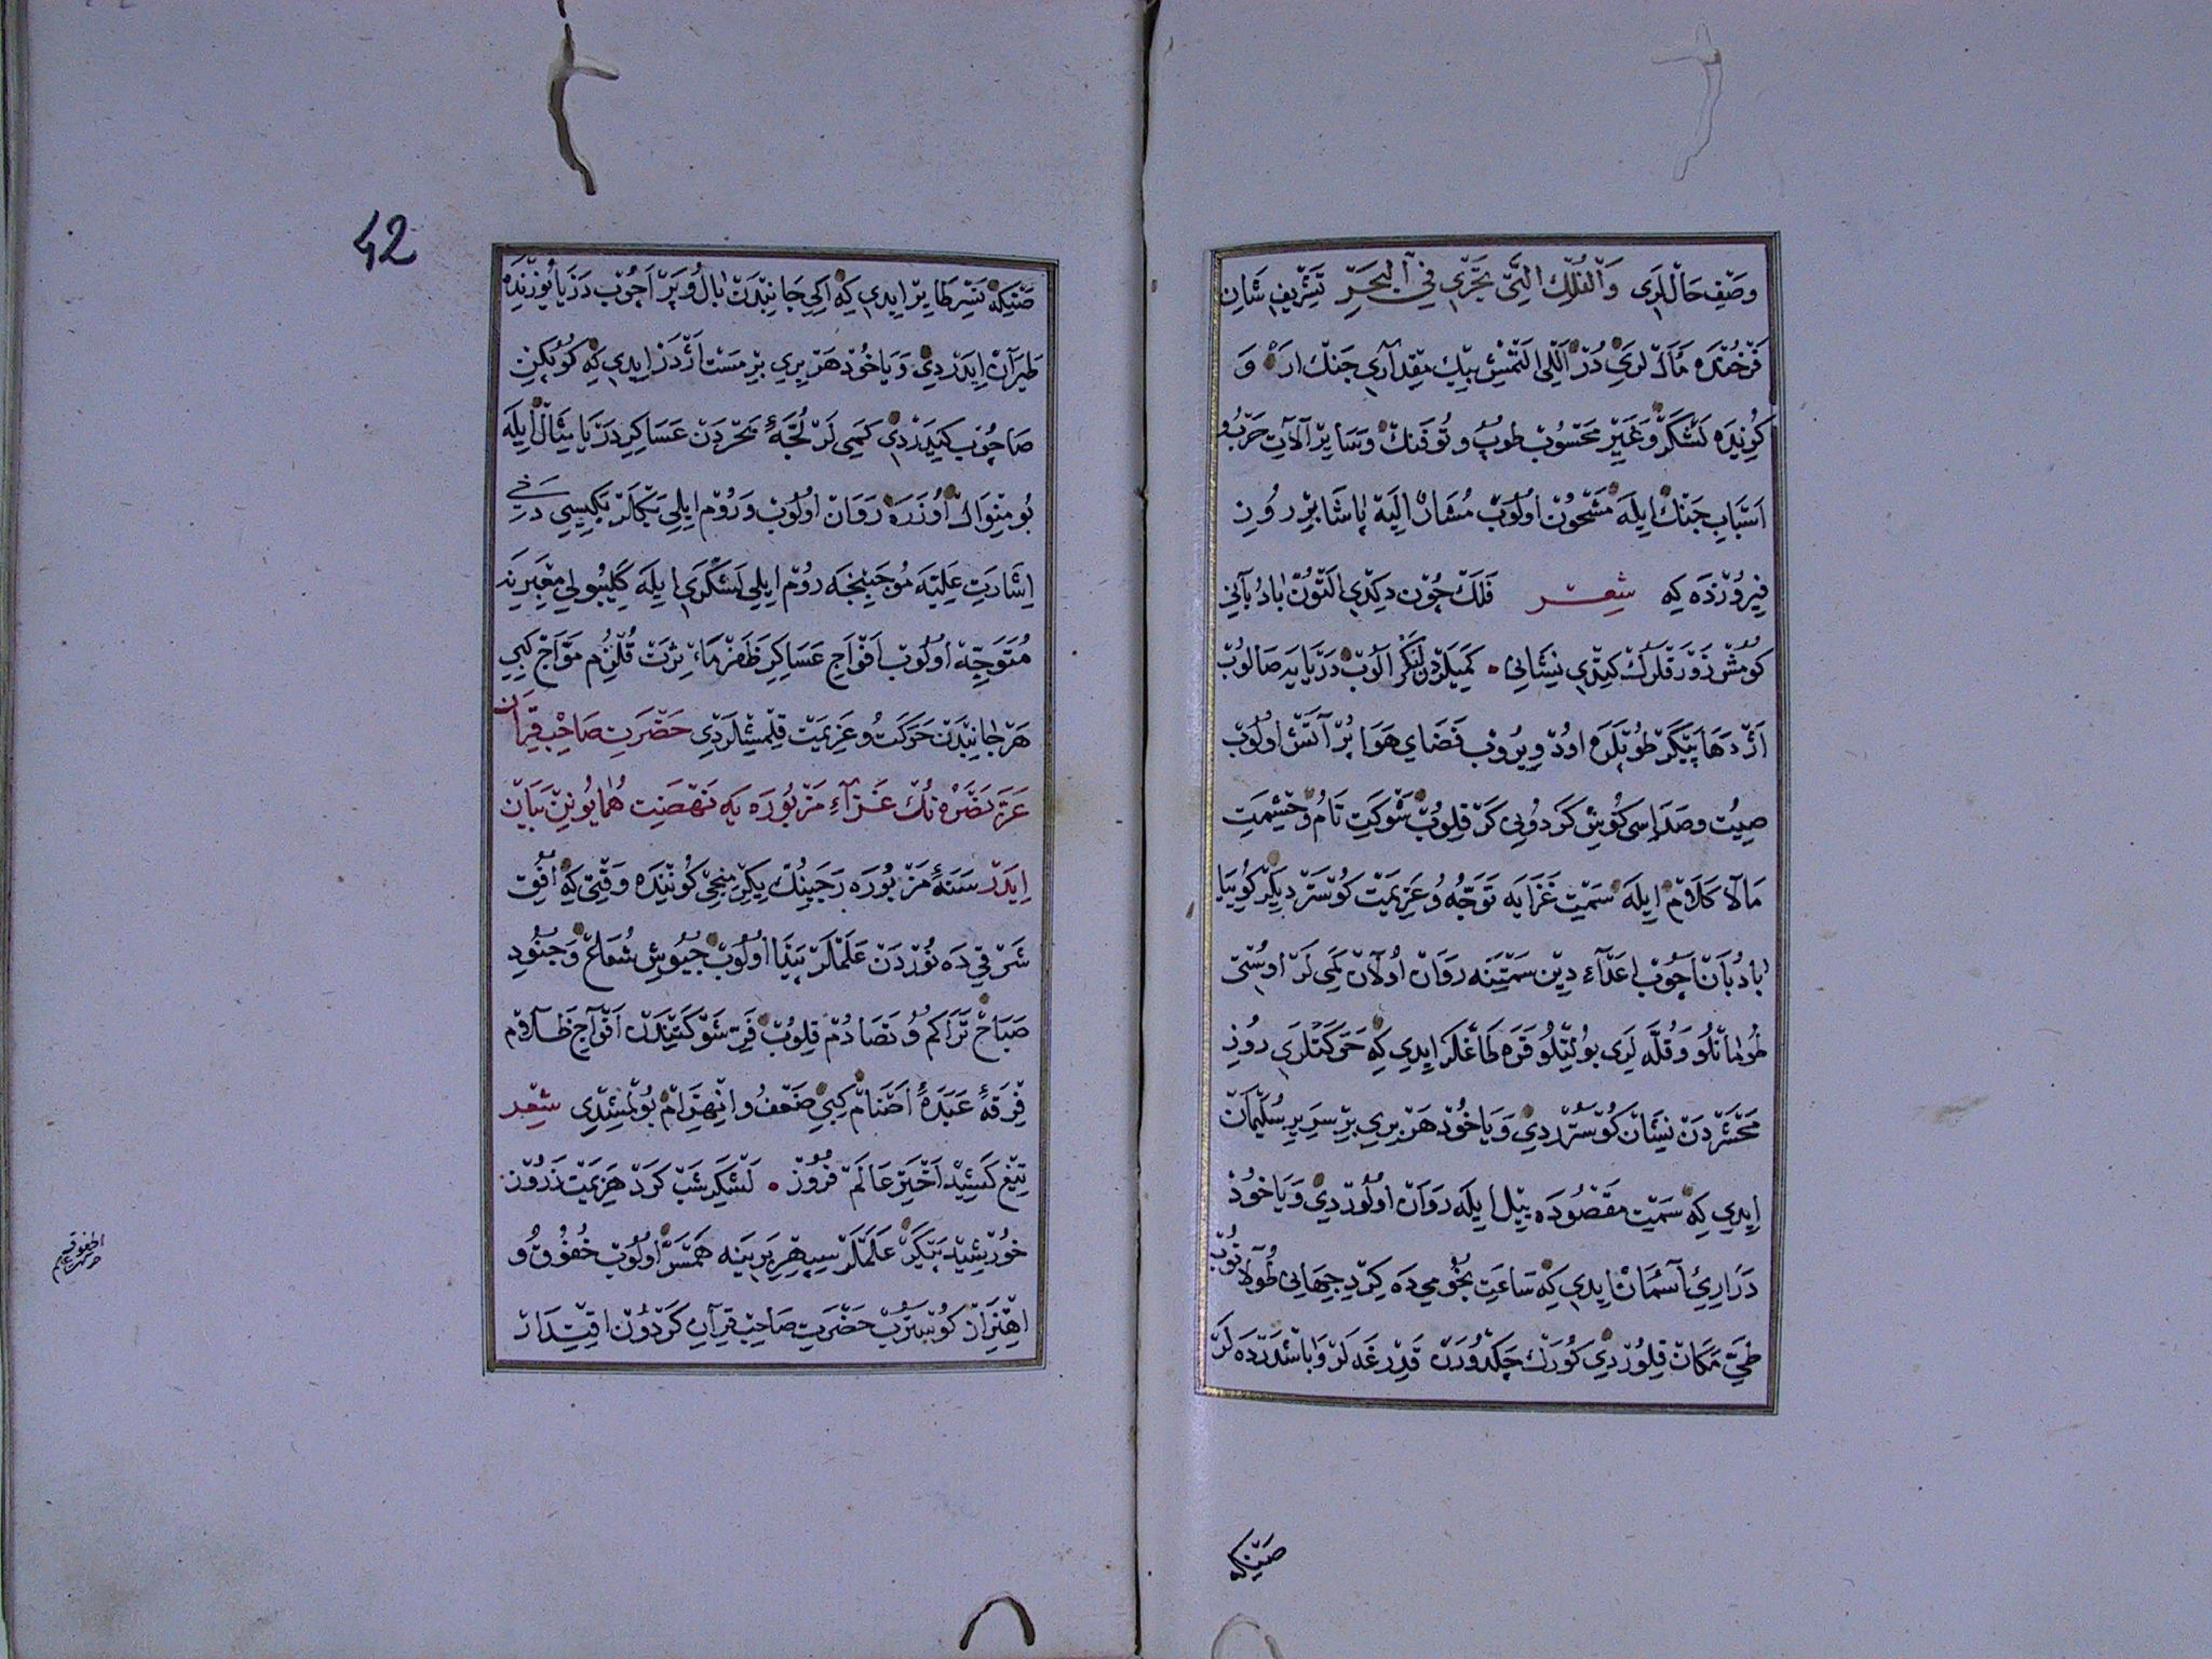 وصف حاللری وَالْفُلْكِ الَّتِي تَجْرِي فِي الْبَحْرِ تشریف شان
فرخنده مآللری در اللی التمش بیك مقداری جنك ار و
كزیده لشكر و غیر محسوب طوپ و توفنك و سایر آلات حرب و
اسباب جنك ایله مشحون اولوب مشار الیه پاشا بر روز
فیروزده كه شعر فلك چون دكدی التون بادبانی
كومش زورقلرك كیتدی نشانی • كمیلردن لنكر الوب دریایه صالوب
اژدها پیكر طوپلره اود ویروب فضای هوا پر آتش اولوب
صیت و صداسی كوش كردونی كر قلوب شوكت تام و حشمت
مالا كلام ایله سمت غزایه توجه و عزیمت كوستردیلر كوییا
بادبان اچوب اعداء دین سمتینه روان اولان كمی لر اوستی
طومانلو و قله لری بولتلو قره طاغلر ایدی كه حركتلری روز
محشردن نشان كوستردی و یا خود هر بری بر سریر سلیمان
ایدی كه سمت مقصوده ییل ایله روان اولوردی و یا خود
دراریء آسمان ایدی كه ساعت نجومی ده كرد جهانی طولانوب
طی مكان قلوردی كورك چكدورن قدرغه لر و باشدرده لر
صنكه
42
صنكه نسر طایر ایدی كه ایكی جانبدن بال و پر اچوب دریا یوزنده
طیران ایدردی و یا خود هر بری بر مست اژدر ایدی كه كوپكن
صاچوب كیدردی كمی لر لجهٔ بحردن عساكر دریا مثال ایله
بو منوال اوزره روان اولوب و روم ایلی بكلر بكیسی دخی
اشارت علیه موجبنجه روم ایلی لشكری ایله كلیبولی معبرینه
متوجه اولوب افواج عساكر ظفر مآثرت قلزم مواج كبی
هر جانبدن حركت و عزیمت قلمشیلردی حضرت صاحب قران
عز نصره نك غزاء مزبوره یه نهضت همایونین بیان
ایدر سنهٔ مزبوره رجبنك یكرمنجی كوننده وقتی كه افق
شرقی ده نوردن علملر پیدا اولوب جیوش شعاع و جنود
صباح تراكم و تصادم قلوب فر شوكتیندن افواج ظلام
فرقهٔ عبدهٔ اصنام كبی ضعف و انهزام بولمشدی شعر
تیغ كشید اختر عالم فروز • لشكر شب كرد هزیمت ز روز
خورشید پیكر علملر سپهر برینه همسر اولوب خفوق و
اهتزاز كوستروب حضرت صاحب قران كردون اقتدار